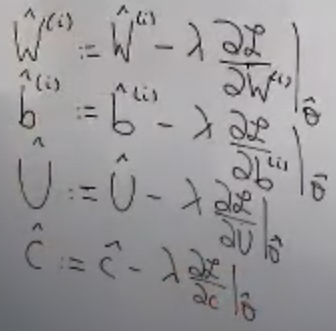 Ŵ⁽ⁱ⁾ := Ŵ⁽ⁱ⁾ - λ ∂ℒ/∂W⁽ⁱ⁾ |θ̂
b̂⁽ⁱ⁾ := b̂⁽ⁱ⁾ - λ ∂ℒ/∂b⁽ⁱ⁾ |θ̂
Û := Û - λ ∂ℒ/∂U |θ̂
ĉ := ĉ - λ ∂ℒ/∂c |θ̂